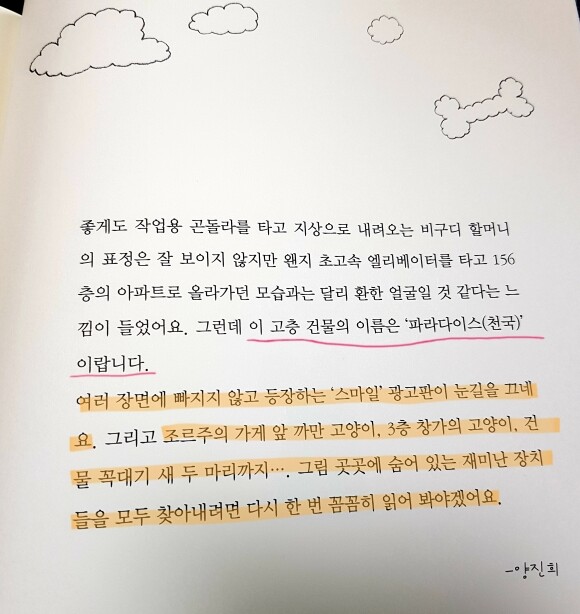 좋게도 작업용 곤돌라를 타고 지상으로 내려오는 비구디 할머니
의 표정은 잘 보이지 않지만 왠지 초고속 엘리베이터를 타고 156
층의 아파트로 올라가던 모습과는 달리 환한 얼굴일 것 같다는 느
낌이 들었어요. 그런데 이 고층 건물의 이름은 ‘파라다이스(천국)’
이랍니다.
여러 장면에 빠지지 않고 등장하는 ‘스마일’ 광고판이 눈길을 끄네
요. 그리고 조르주의 가게 앞 까만 고양이, 3층 창가의 고양이, 건
물 꼭대기 새 두 마리까지…. 그림 곳곳에 숨어 있는 재미난 장치
들을 모두 찾아내려면 다시 한 번 꼼꼼히 읽어 봐야겠어요.
-양진희